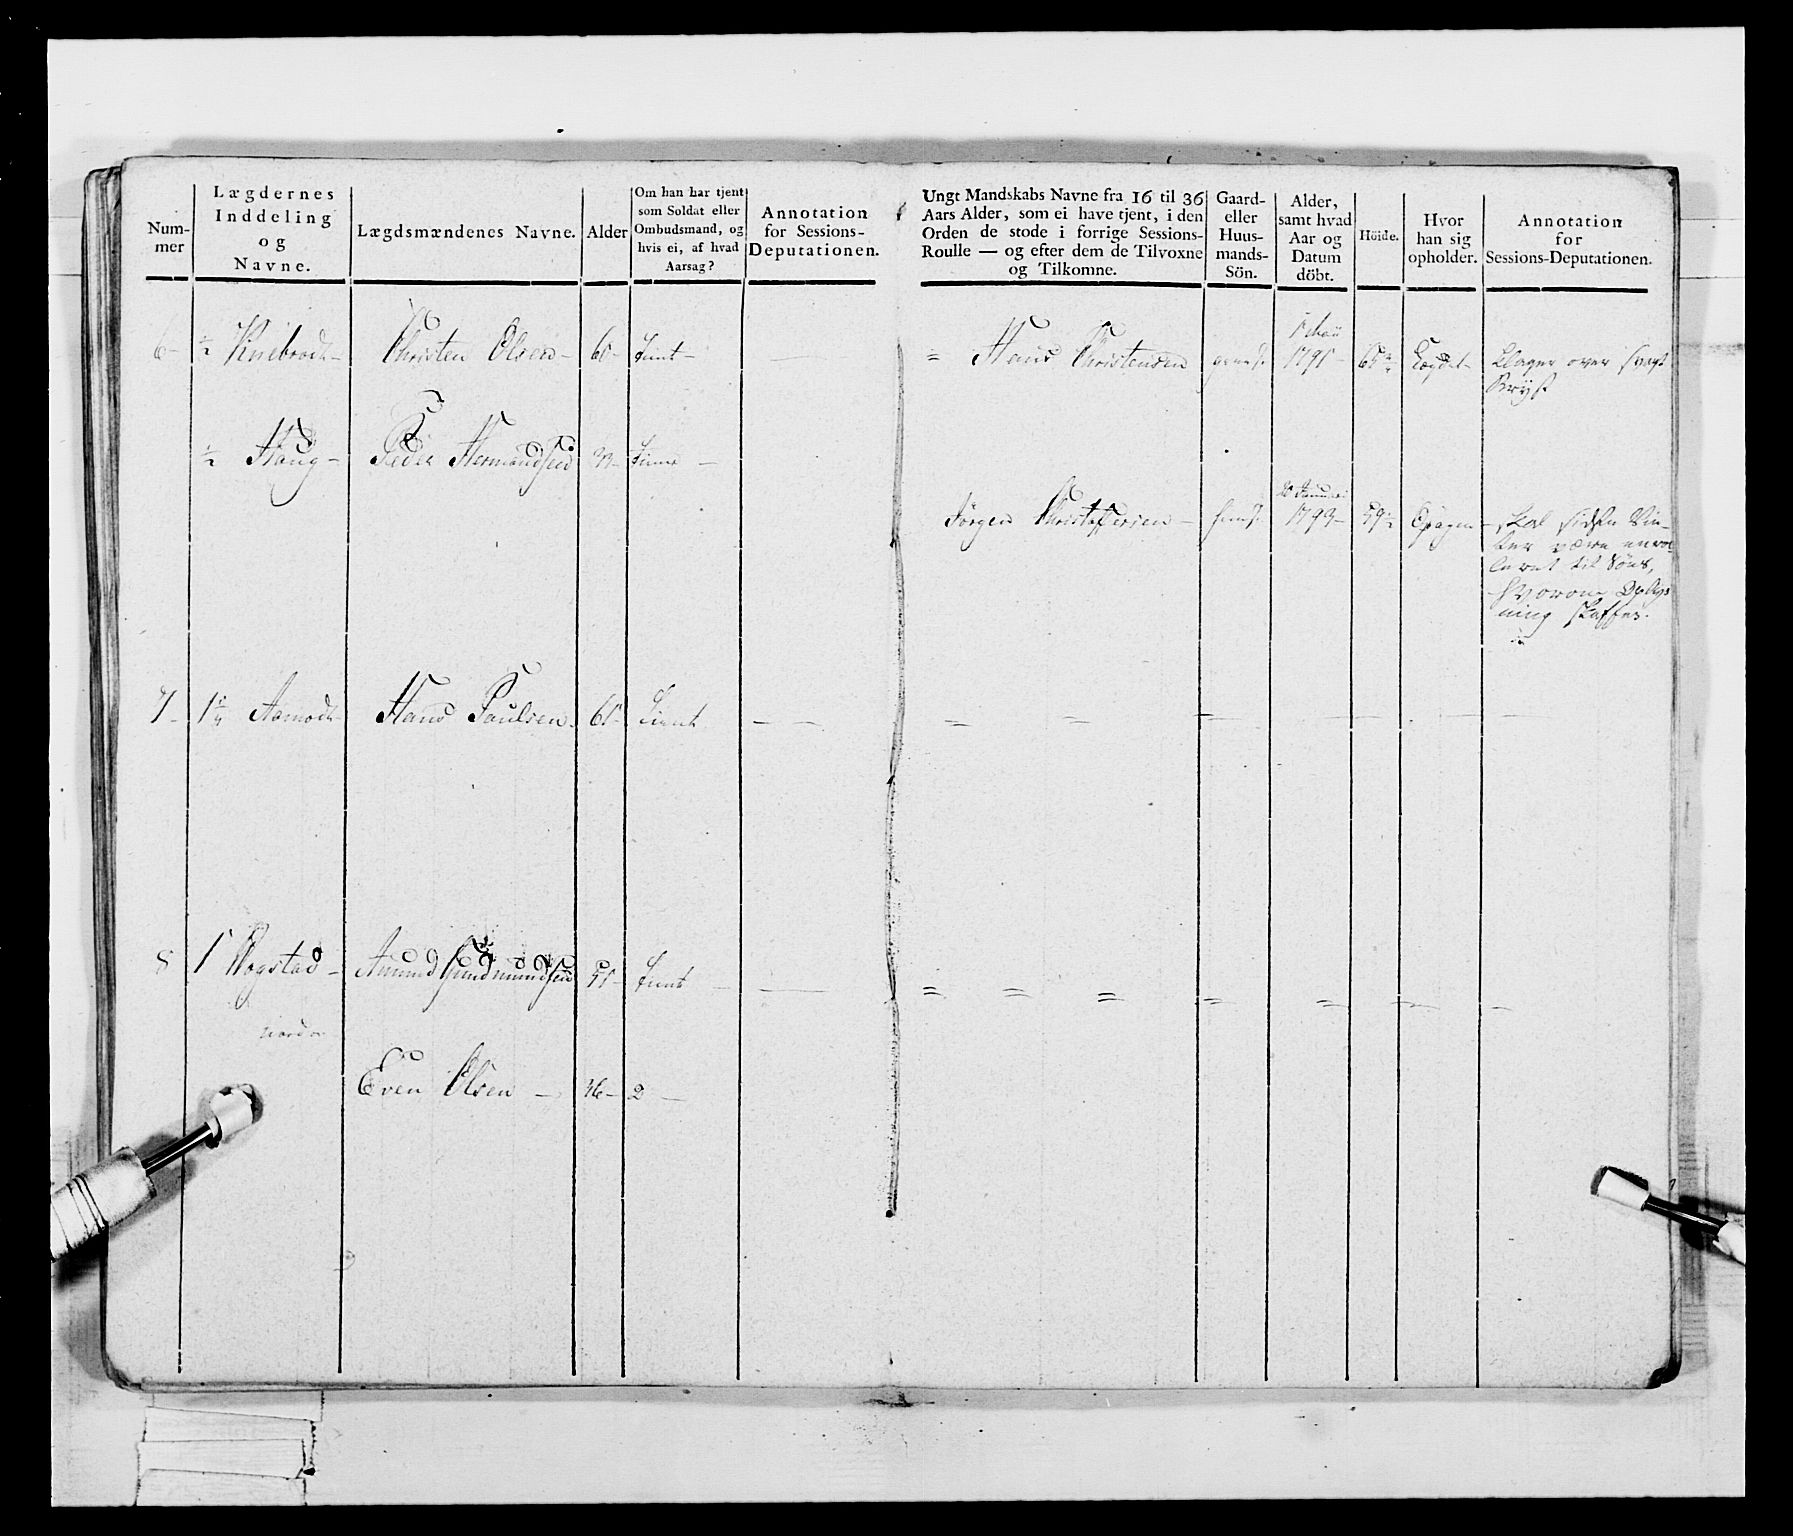 Num-
mer
Lægdernes
Inddeling
og
Navne.
Lægdsmændenes Navne.
Alder
Om han har tjent
som Soldat eller
Ombudsmand, og
hvis ei, af hvad
Aarsag?
Annotation
for Sessions-
Deputationen.
Ungt Mandskabs Navne fra 16 til 36
Aars Alder, som ei have tjent, i den
Orden de stode i forrige Sessions-
Roulle — og efter dem de Tilvoxne
og Tilkomne.
Gaard-
eller
Huus-
mands-
Sön.
Alder,
samt hvad
Aar og
Datum
döbt.
Höide.
Hvor
han sig
opholder.
Annotation
for
Sessions-Deputationen.
6 - ½ Knebrodt - Christen Olsen - tient - —
= Hans Christensen
1791 - Lægdet - klager over svagt
Bryst
½ Haug - Peder Hermandsen tient —
Jörgen Christophersen -
20 Januari
1793 - 59½ skal sidste Vin-
ter være enrol-
leret til Söes,
hvorom Oplys
ning skaffes.
7 - 1¼ Aamodt Hans Paulsen tient — —
= = — — — —
8 1 Rogstad - Amund Gudmundsen tient — —
= = = = = — —
nordre
Even Olsen — 46 - 2 —